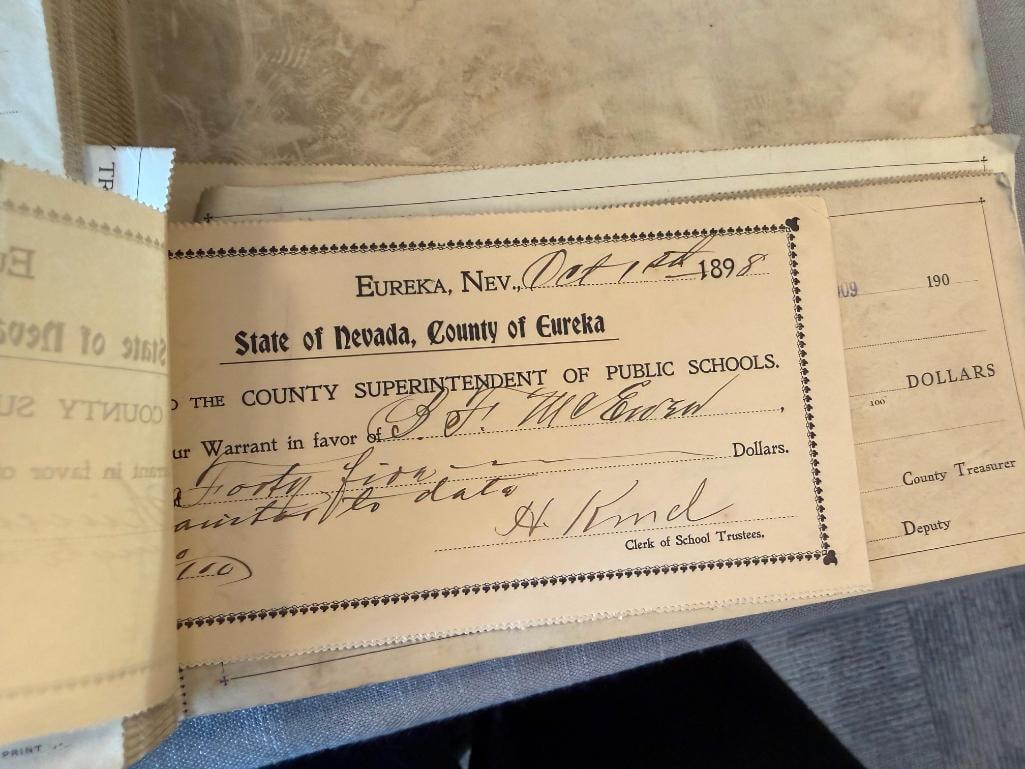 EUREKA, NEV., Oct 1st 1898
State of Nevada, County of Eureka
THE COUNTY SUPERINTENDENT OF PUBLIC SCHOOLS.
ur Warrant in favor of B. F. McEwen,
Forty five Dollars.
to date
H. Kind
Clerk of School Trustees.
/100
TR
Eu
State of Neva
COUNTY SU
rant in favor o
09 190
DOLLARS
100
County Treasurer
Deputy
PRINT